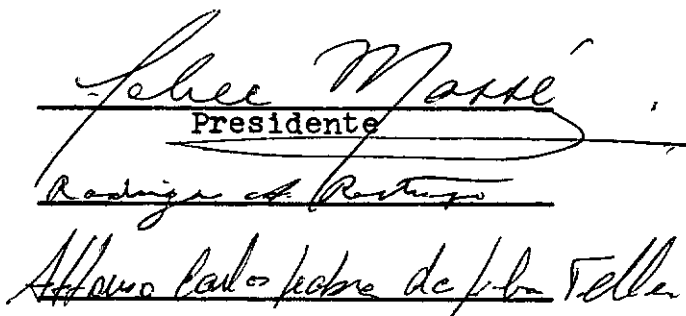 Massé
Presidente
Rodrigo A. Restrepo
Affonso Carlos de Telles